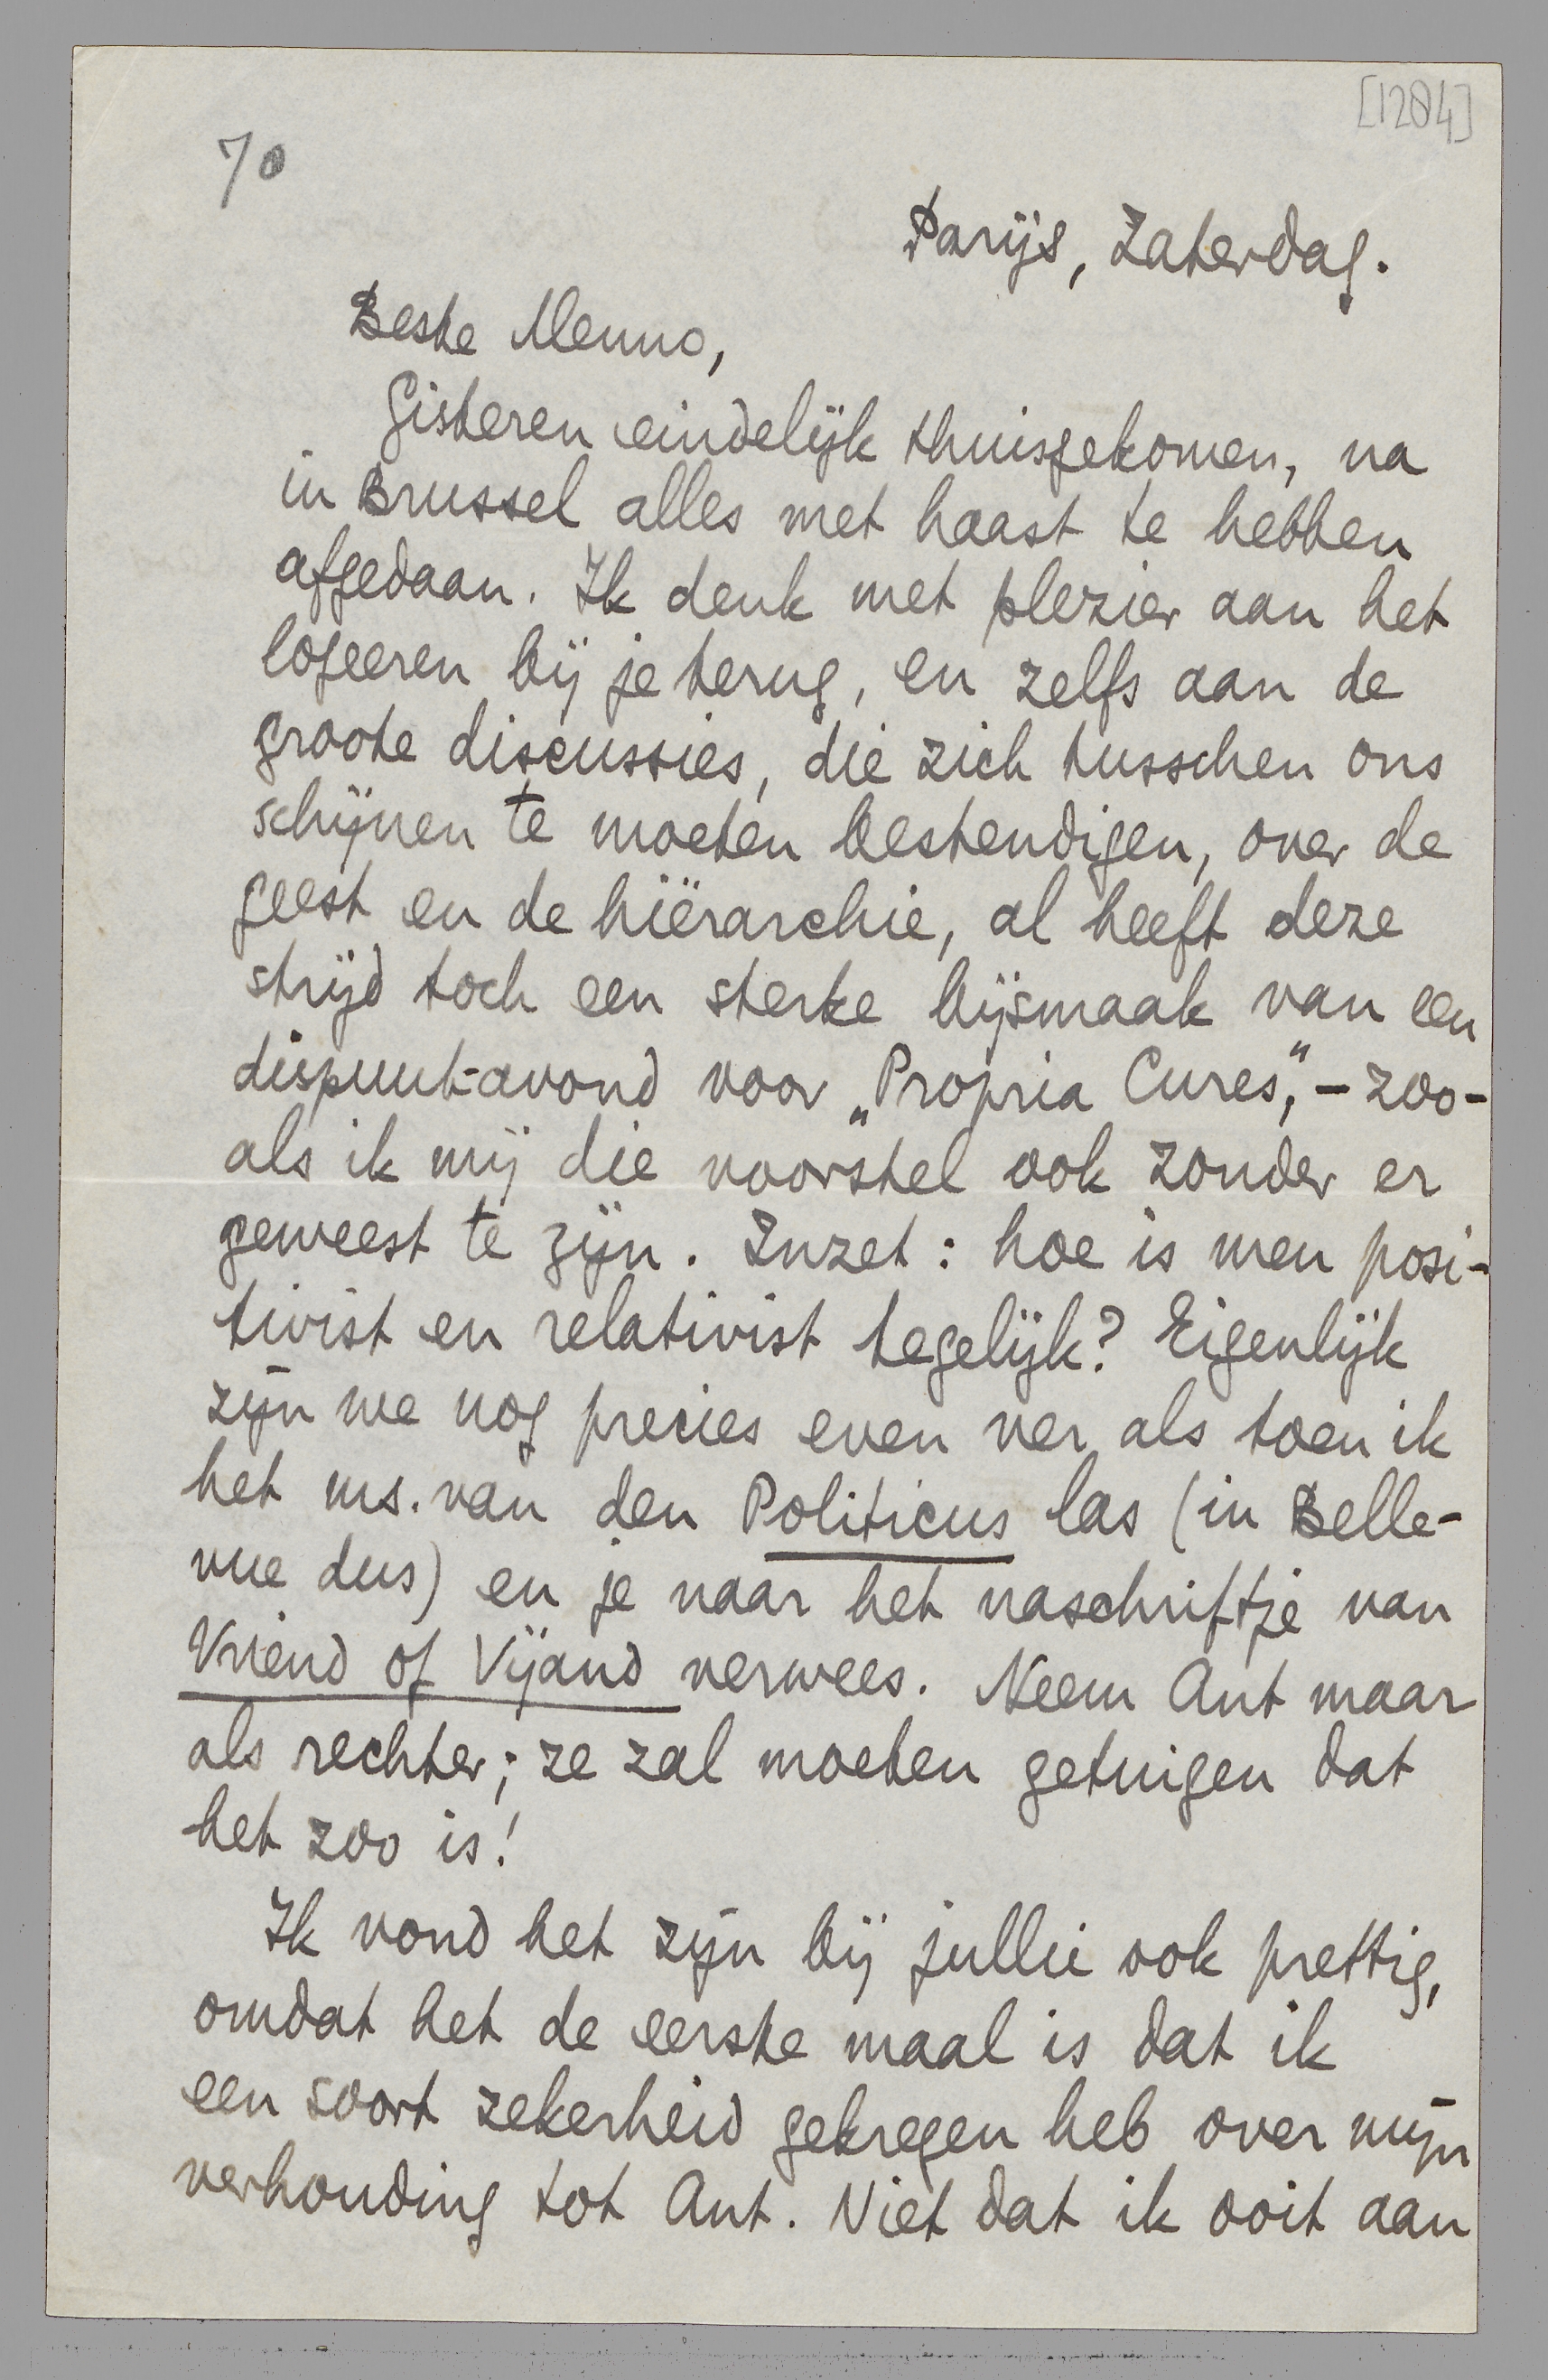 [1284]
70
Parijs, Zaterdag.
Beste Menno,
Gisteren eindelijk thuisgekomen, na
in Brussel alles met haast te hebben
afgedaan. Ik denk met plezier aan het
logeeren bij je terug, en zelfs aan de
groote discussies, die zich tusschen ons
schijnen te moeten bestendigen, over de
geest en de hiërarchie, al heeft deze
strijd toch een sterke bijsmaak van een
dispuut-avond voor „Propria Cures", – zoo-
als ik mij die voorstel ook zonder er
geweest te zijn. Inzet: hoe is men posi-
tivist en relativist tegelijk? Eigenlijk
zijn we nog precies even ver als toen ik
het ms. van den Politicus las (in Belle-
vue dus) en je naar het naschriftje van
Vriend of Vijand verwees. Neem Ant maar
als rechter; ze zal moeten getuigen dat
het zoo is!
Ik vond het zijn bij jullie ook prettig,
omdat het de eerste maal is dat ik
een soort zekerheid gekregen heb over mijn
verhouding tot Ant. Niet dat ik ooit aan